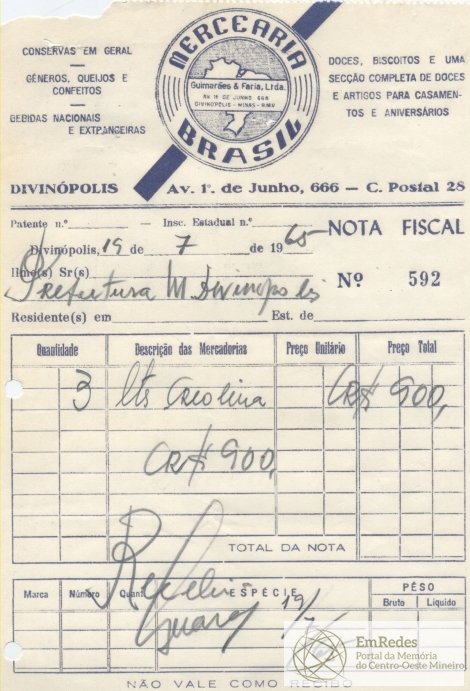 CONSERVAS EM GERAL
GÊNEROS, QUEIJOS E
CONFEITOS
BEBIDAS NACIONAIS
E EXTRANGEIRAS
MERCEARIA
Guimarães & Faria, Ltda.
AV. 1º DE JUNHO, 666
DIVINÓPOLIS - MINAS - RMV
BRASIL
DOCES, BISCOITOS E UMA
SECÇÃO COMPLETA DE DOCES
E ARTIGOS PARA CASAMEN-
TOS E ANIVERSÁRIOS
DIVINÓPOLIS Av. 1º. de Junho, 666 — C. Postal 28
Patente n.º — Insc. Estadual n.º
NOTA FISCAL
Divinópolis, 19 de 7 de 1965
Nº 592
Ilmo(s) Sr(s)
Prefeitura M. Divinopolis
Residente(s) em Est. de
Quantidade Descrição das Mercadorias Preço Unitário Preço Total
3 lts Creolina CR$ 900,
CR$ 900,
TOTAL DA NOTA
Recebi
19/7
Marca Número Quant. ESPÉCIE PÊSO
Bruto Líquido
NÃO VALE COMO RECIBO
EmRedes
Portal da Memória
do Centro-Oeste Mineiro